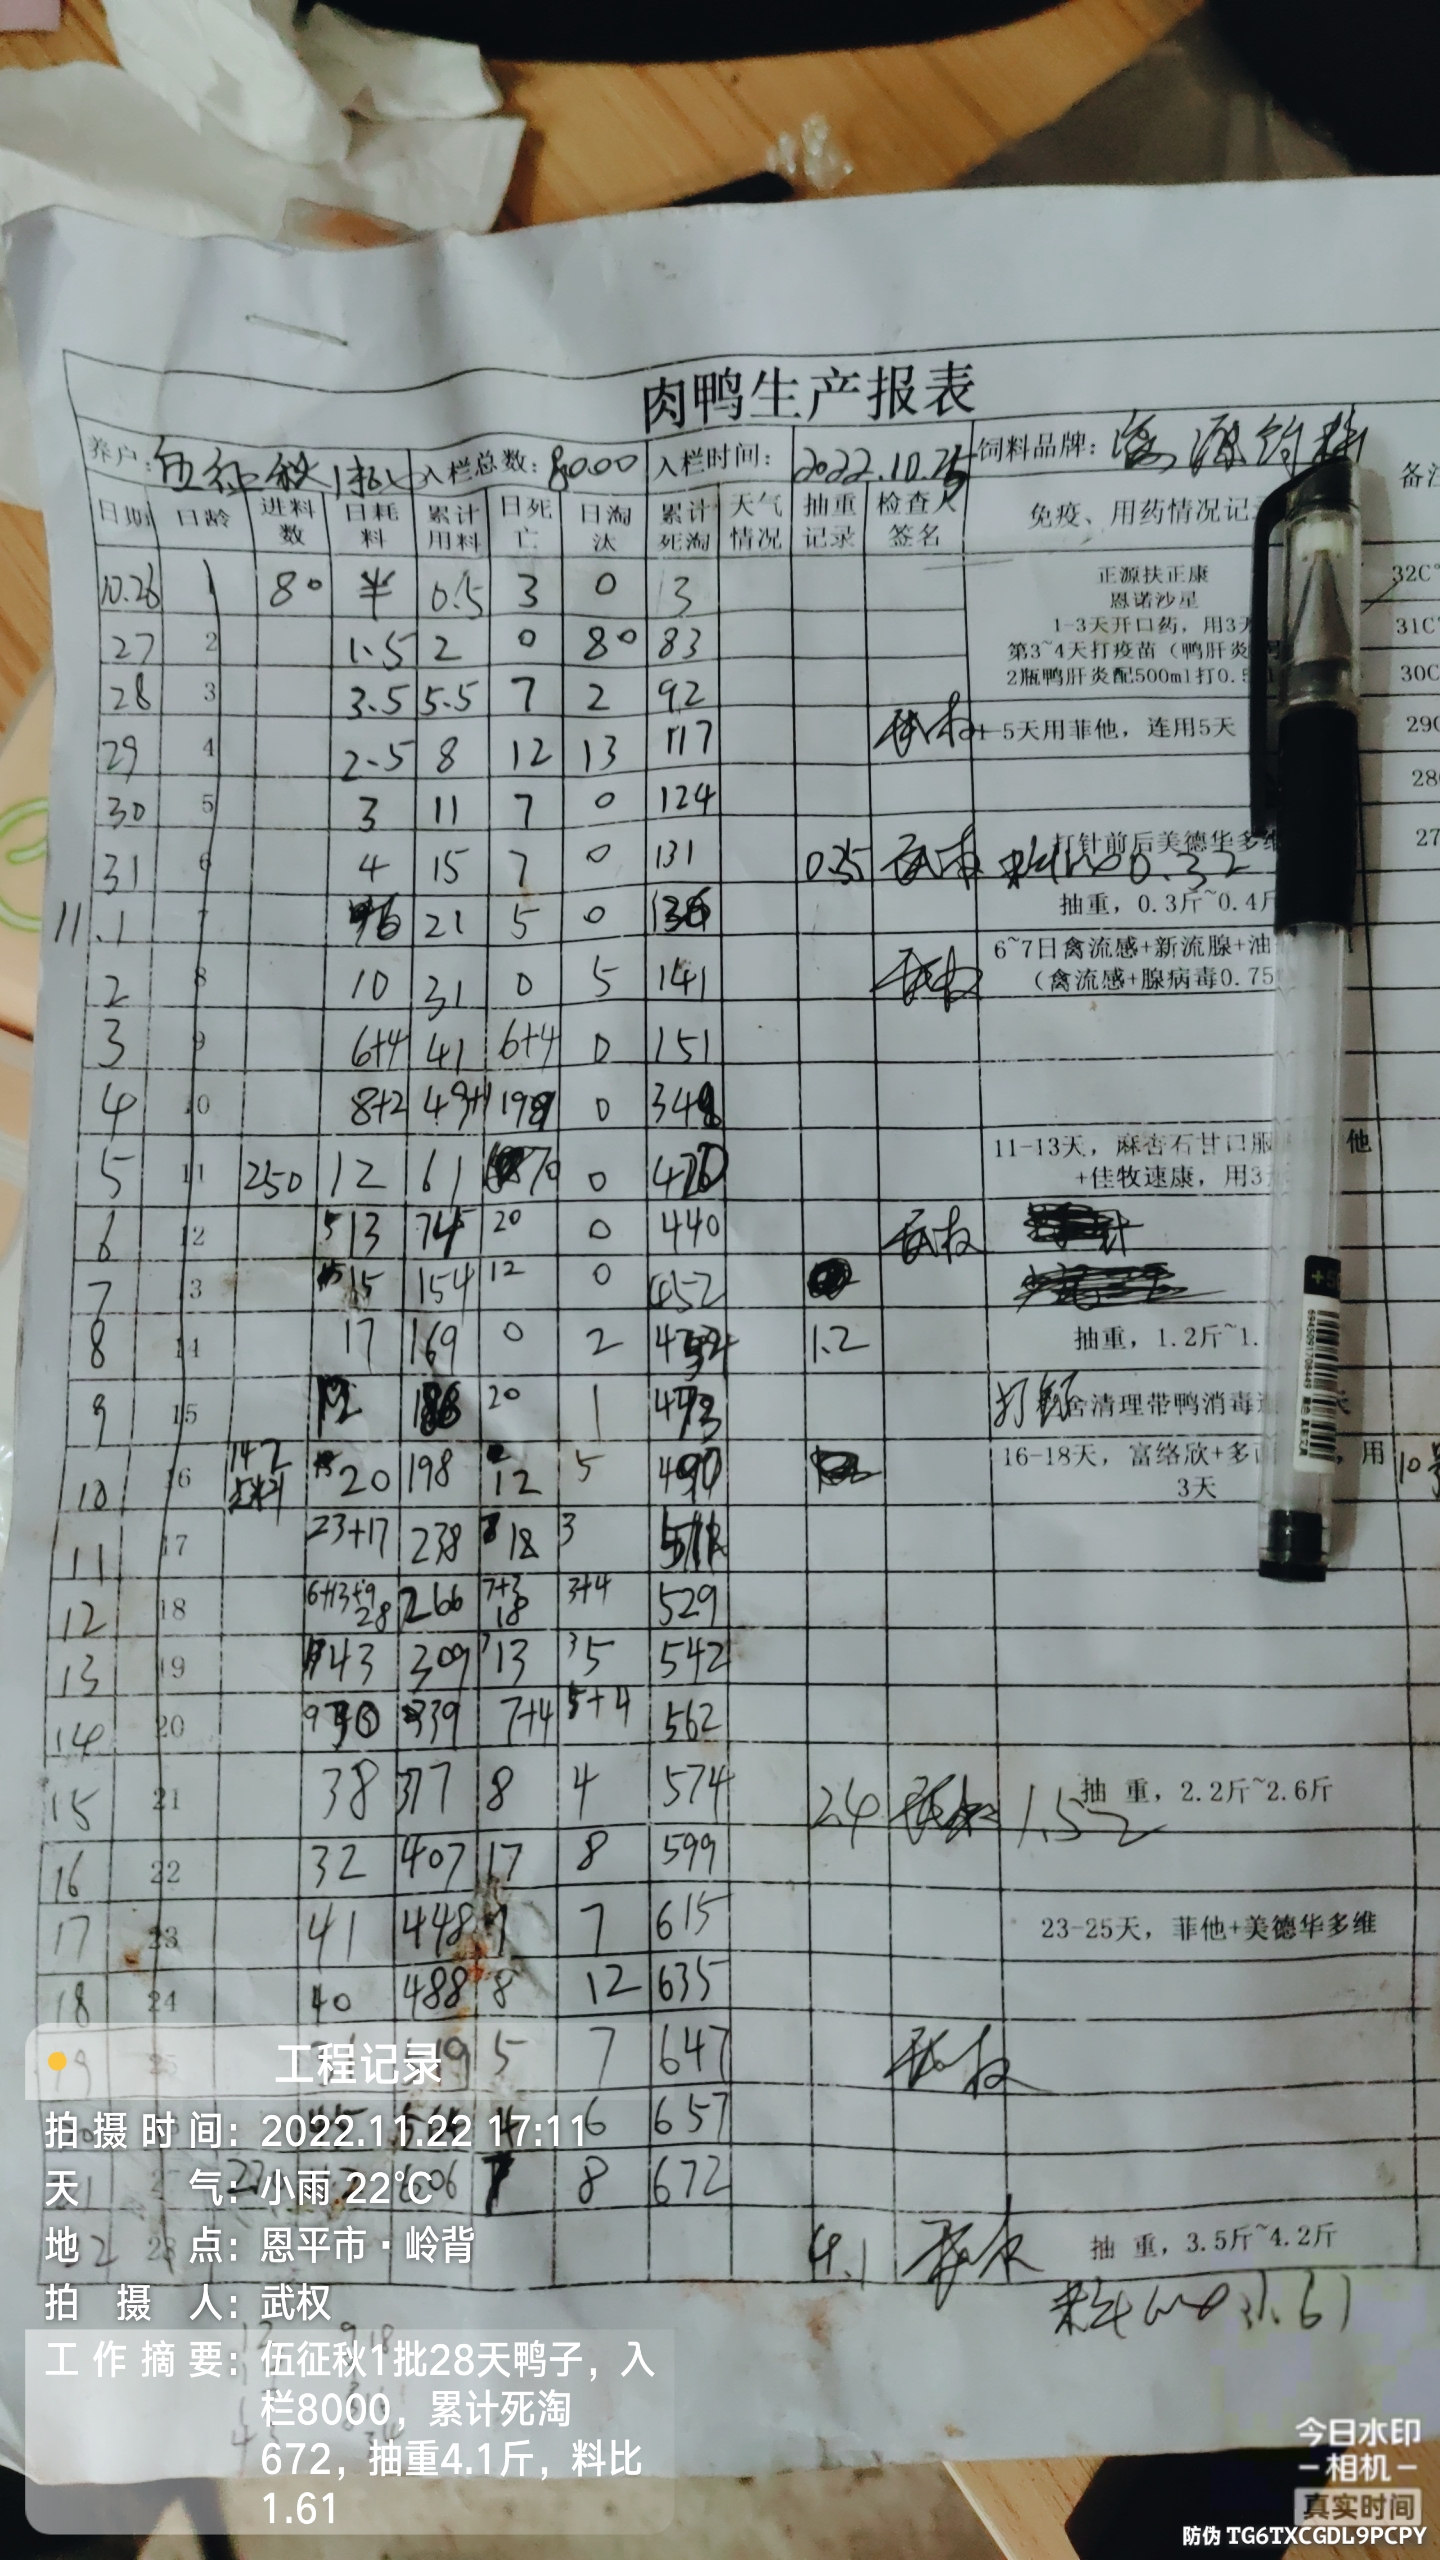 肉鸭生产报表
养户：伍征秋1批 入栏总数：8000 入栏时间： 2022.10.25 饲料品牌：
日期 日龄 进料数 日耗料 累计用料 日死亡 日淘汰 累计死淘 天气情况 抽重记录 检查人签名 免疫、用药情况记 备注
10.26 1 80 半 0.5 3 0 3 正源扶正康 32C°
恩诺沙星
1-3天开口药，用3天
27 2 1.5 2 0 80 83 第3~4天打疫苗（鸭肝炎 31C
28 3 3.5 5.5 7 2 92 2瓶鸭肝炎配500ml打0.5 30C
29 4 2.5 8 12 13 117 武权 -5天用菲他，连用5天 29
30 5 3 11 7 0 124 28
31 6 4 15 7 0 131 0.35 武权 打针前后美德华多维 27
料比0.32
11.1 7 6 21 5 0 136 抽重，0.3斤~0.4斤
2 8 10 31 0 5 141 武权 6~7日禽流感+新流腺+油
（禽流感+腺病毒0.75
3 9 6+4 41 6+4 0 151
4 10 8+2 49+1 198 0 348
5 11 250 12 61 70 0 420 11-13天，麻杏石甘口服 他
+佳牧速康，用3
6 12 13 74 20 0 440 武权
7 13 15 154 12 0 452
8 14 17 169 0 2 1.2 抽重，1.2斤~1.
9 15 12 186 20 1 473 打针 舍清理带鸭消毒
10 16 142 20 198 12 5 490 16-18天，富络欣+多 ，用 10号
3天
11 17 23+17 238 18 3 511
12 18 6+13+9 28 266 7+3 18 3+4 529
13 19 43 309 13 5 542
14 20 30 339 7+4 5+4 562
15 21 38 377 8 4 574 2.4 武权 1.52 抽 重，2.2斤~2.6斤
16 22 32 407 17 8 599
17 23 41 448 7 615 23-25天，菲他+美德华多维
18 24 40 488 8 12 635
19 25 5 7 647 武权
6 657
8 672
4.1 武权 抽 重，3.5斤~4.2斤
料比 1.61
工程记录
拍摄时间：2022.11.22 17:11
天 气：小雨 22℃
地 点：恩平市·岭背
拍 摄 人：武权
工作摘要：伍征秋1批28天鸭子，入
栏8000，累计死淘
672，抽重4.1斤，料比
1.61
今日水印
相机
真实时间
防伪 TG6TXCGDL9PCPY